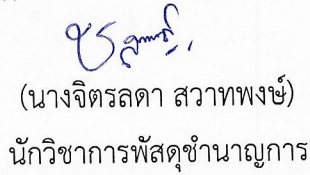 (นางจิตรลดา สวาทพงษ์)
นักวิชาการพัสดุชำนาญการ